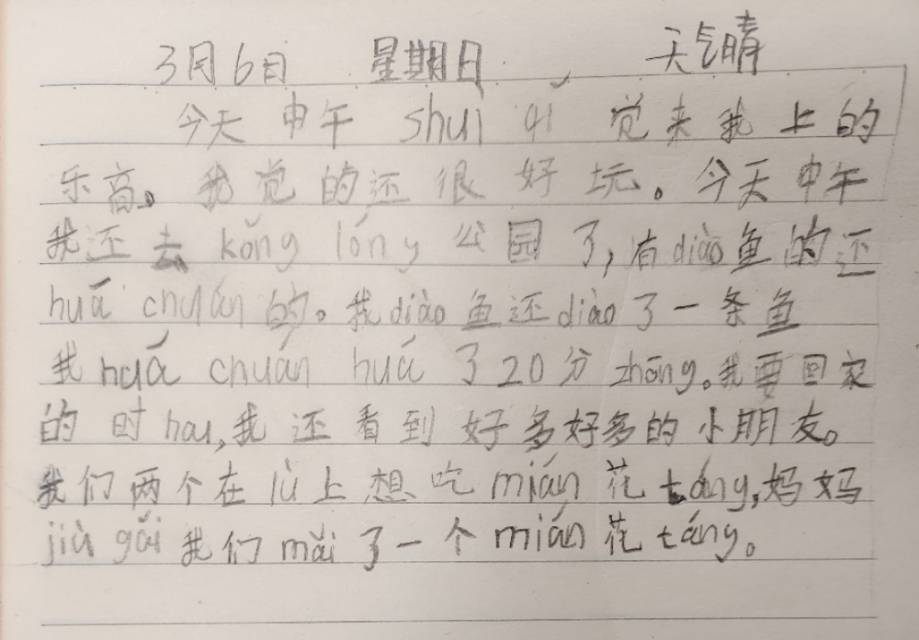 3月6日 星期日 天气晴
今天中午 shuì qǐ 觉来我上的
乐高。我觉的还很好玩。今天中午
我还去 kǒng lóng 公园了,有diào鱼的还
huá chuán 的。我diào鱼还diào了一条鱼
我 huá chuán huá 了20分 zhōng。我要回家
的时hou,我还看到好多好多的小朋友。
我们两个在 lù 上想吃 mián 花 táng,妈妈
jiù gěi 我们 mǎi 了一个 mián 花 táng。